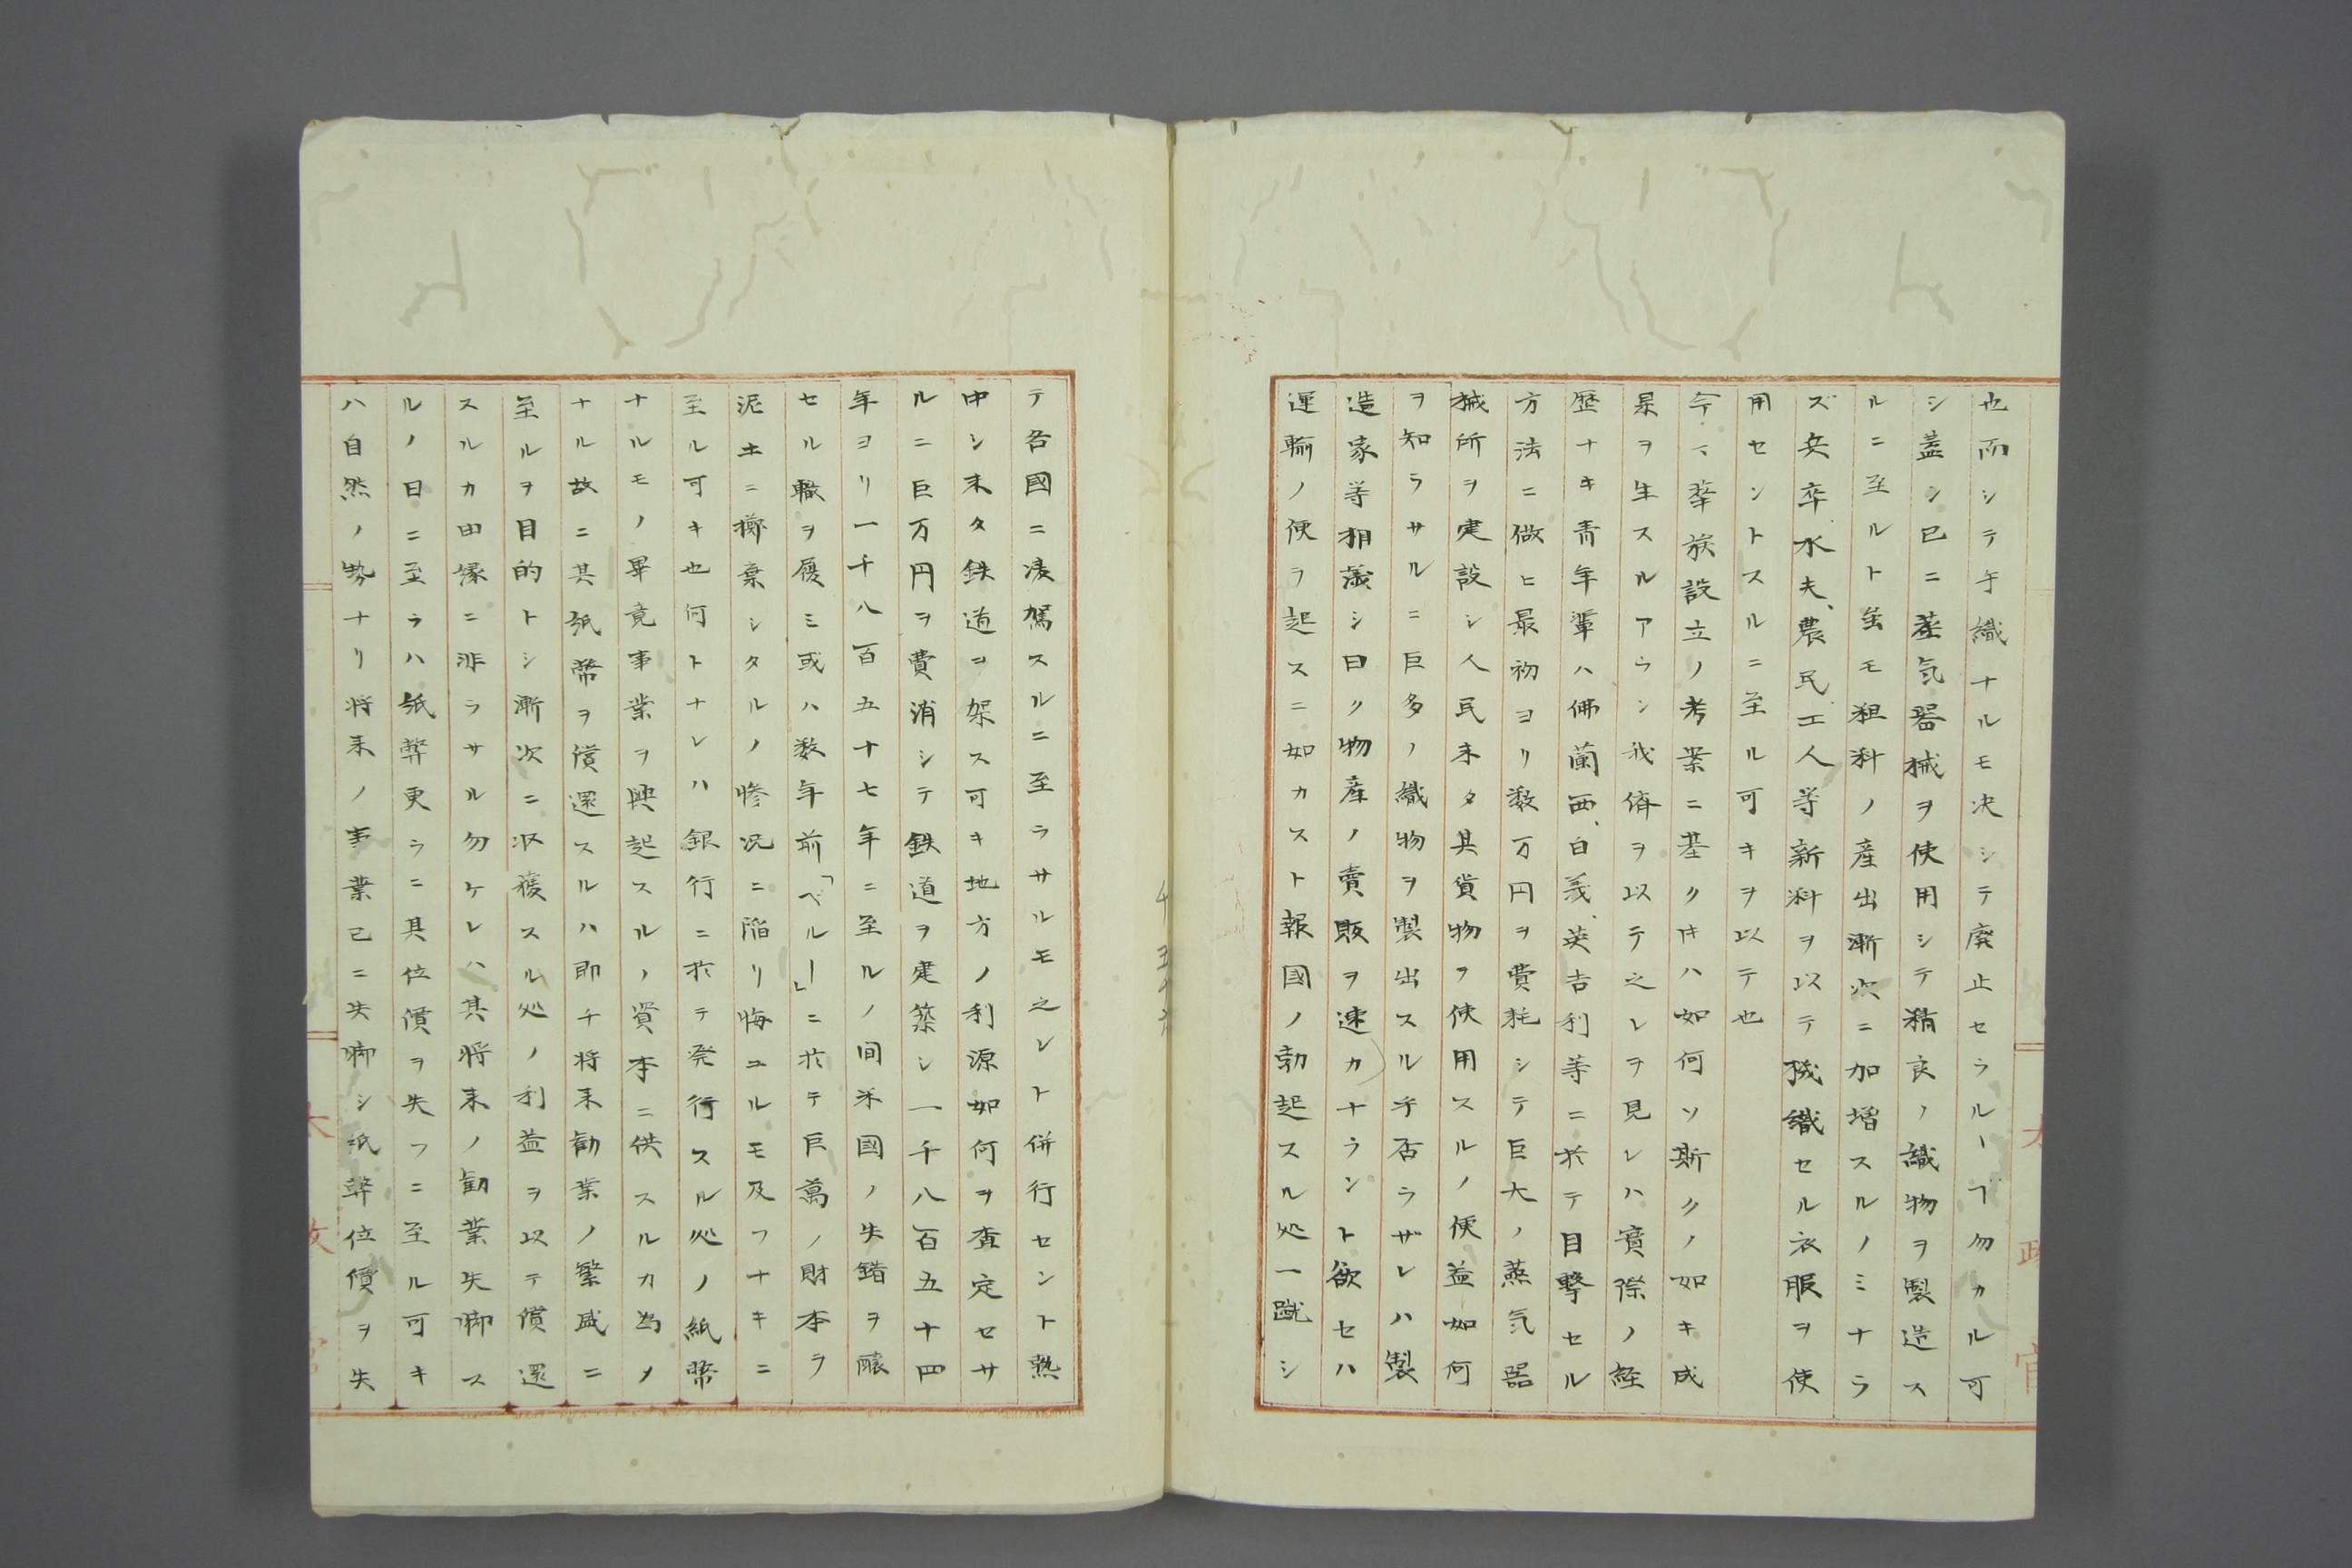 也而シテ手織ナルモ决シテ廃止セラルーヿ勿カル可
シ蓋シ已ニ蒸気器械ヲ使用シテ精良ノ織物ヲ製造ス
ルニ至ルト虽モ粗料ノ産出漸次ニ加増スルノミナラ
ズ兵卒、水夫、農民、工人等新料ヲ以テ機織セル衣服ヲ使
用セントスルニ至ル可キヲ以テ也
今ヤ華族設立ノ考案ニ基クキハ如何ソ斯クノ如キ成
果ヲ生スルアラン我儕ヲ以テ之レヲ見レハ實際ノ経
歴ナキ青年輩ハ佛蘭西、白義、英吉利等ニ於テ目擊セル
方法ニ倣ヒ最初ヨリ数万円ヲ費耗シテ巨大ノ蒸気器
械所ヲ建設シ人民未タ其貨物ヲ使用スルノ便益如何
ヲ知ラサルニ巨多ノ織物ヲ製出スル乎否ラザレハ製
造家等相議シ曰ク物産ノ賣販ヲ速カナラント欲セハ
運輸ノ便ヲ起スニ如カスト報國ノ勃起スル処一蹴シ
テ各國ニ凌駕スルニ至ラサルモ之レト併行セント熱
中シ未タ鉄道ヲ架ス可キ地方ノ利源如何ヲ査定セサ
ルニ巨万円ヲ費消シテ鉄道ヲ建築シ一千八百五十四
年ヨリ一千八百五十七年ニ至ルノ間米國ノ失錯ヲ醸
セル轍ヲ履ミ或ハ数年前「ペルー」ニ於テ巨萬ノ財本ヲ
泥土ニ擲棄シタルノ惨况ニ陥リ悔ユルモ及フナキニ
至ル可キ也何トナレハ銀行ニ於テ発行スル処ノ紙幣
ナルモノ畢竟事業ヲ興起スルノ資本ニ供スルカ為メ
ナル故ニ其紙幣ヲ償還スルハ即チ将来勧業ノ繁盛ニ
至ルヲ目的トシ漸次ニ収穫スル処ノ利益ヲ以テ償還
スルカ由縁ニ非ラサル勿ケレハ其将来ノ勧業失脚ス
ルノ日ニ至ラハ紙弊更ラニ其位價ヲ失フニ至ル可キ
ハ自然ノ勢ナリ将来ノ事業已ニ失脚シ紙弊位價ヲ失